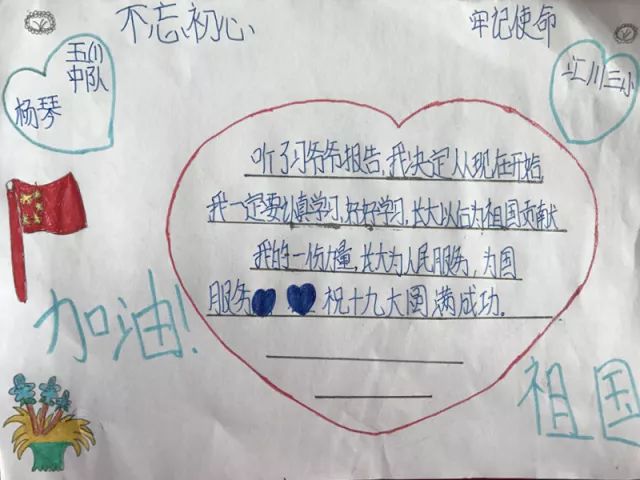 不忘初心
牢记使命
五(1)
中队
杨琴
汇川三小
听了习爷爷报告,我决定从现在开始
我一定要认真学习,好好学习,长大以后为祖国贡献
我的一份力量,长大为人民服务,为国
服务 祝十九大圆满成功.
加油!
祖国